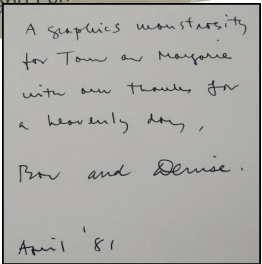 A graphics monstrosity
for Tom and Marjorie
with our thanks for
a heavenly day,
Bob and Denise.
April '81